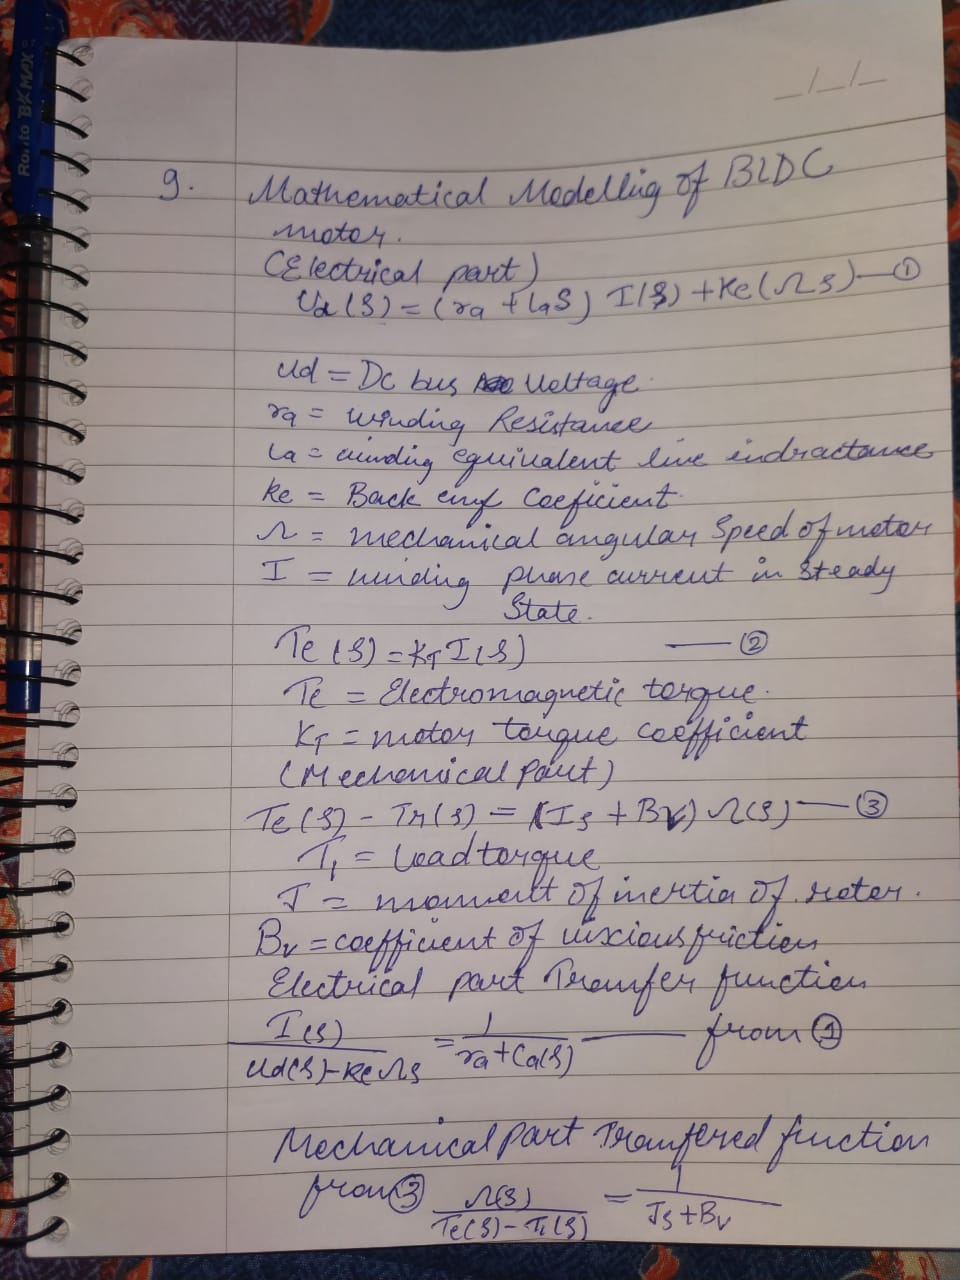 Rorito BXMAX
_/_/_
9. Mathematical Modelling of BLDC
motor.
(Electrical part)
Ud(S) = (ra + LaS) I(S) + Ke(Ω S) — ①
Ud = Dc bus Voltage.
ra = winding Resistance
La = winding equivalent line indractance
Ke = Back emf Coeficient.
Ω = mechanical angular Speed of motor
I = winding phase current in Steady
State.
Te (S) = KT I(S) — ②
Te = Electromagnetic torque.
KT = motor torque coefficient
(Mechanical part)
Te(S) - T1(S) = (Js + BV) Ω(S) — ③
T1 = Load torque
J = moment of inertia of rotor.
Bv = coefficient of viscious friction
Electrical part Transfer function
I(S) / Ud(S) - Ke Ω S = 1 / ra + La(S) — from ①
Mechanical part Transfered function
from ③ Ω(S) / Te(S) - T1(S) = 1 / Js + Bv